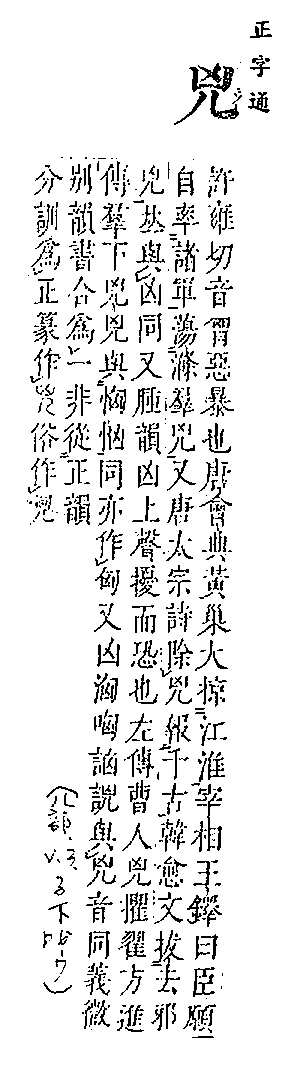 正字通
兇
許雍切音胷惡暴也唐會典黃巢大掠江淮宰相王鐸曰臣願
自率諸軍蕩滌羣兇又唐太宗詩除兇報千古韓愈文拔去邪
兇𠀤與凶同又腫韻凶上聲擾而恐也左傳曹人兇懼翟方進
傳羣下兇兇與恟忷同亦作匈又凶洶哅訩說與兇音同義微
別韻書合爲一非從正韻
分訓爲正篆作兇俗作